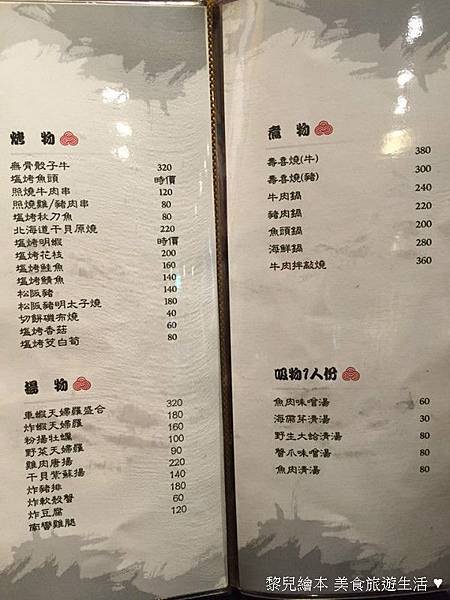 烤物
無骨骰子牛 320
塩烤魚頭 時價
照燒牛肉串 120
照燒雞/豬肉串 80
塩烤秋刀魚 80
北海道干貝原燒 220
塩烤明蝦 時價
塩烤花枝 200
塩烤鮭魚 160
塩烤鯖魚 140
松阪豬 140
松阪豬明太子燒 180
切餅磯布燒 40
塩烤香菇 60
塩烤茭白筍 80
揚物
車蝦天婦羅盛合 320
炸蝦天婦羅 180
粉揚牡蠣 160
野菜天婦羅 100
雞肉唐揚 90
干貝紫蘇揚 220
炸豬排 140
炸軟殼蟹 180
炸豆腐 60
南蠻雞腿 120
煮物
壽喜燒(牛) 380
壽喜燒(豬) 300
牛肉鍋 240
豬肉鍋 220
魚頭鍋 200
海鮮鍋 280
牛肉拌敲燒 360
吸物1人份
魚肉味噌湯 60
海帶芽清湯 30
野生大蛤清湯 80
蟹爪味噌湯 80
魚肉清湯 80
黎兒繪本 美食旅遊生活 ♥